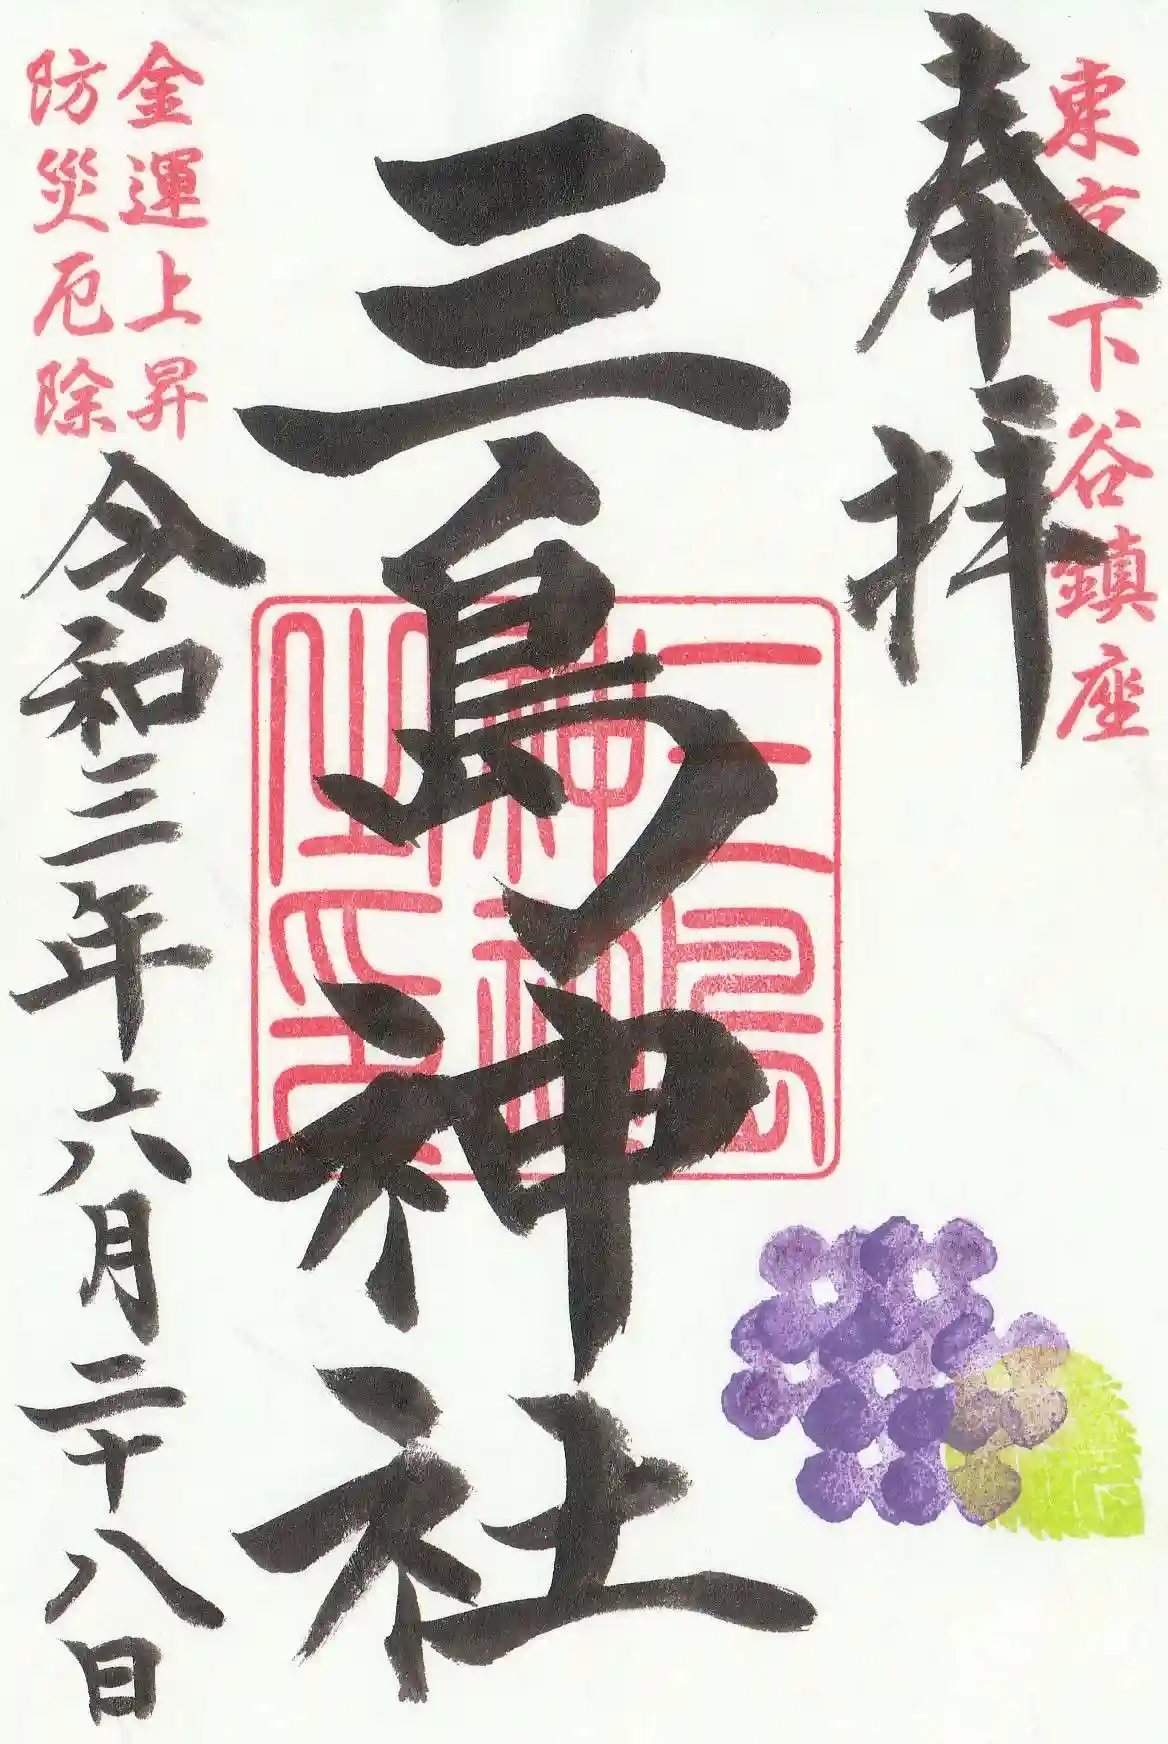 東京下谷鎮座
奉拝
三島神社
三島神社之印
金運上昇
防災厄除
令和三年六月二十八日